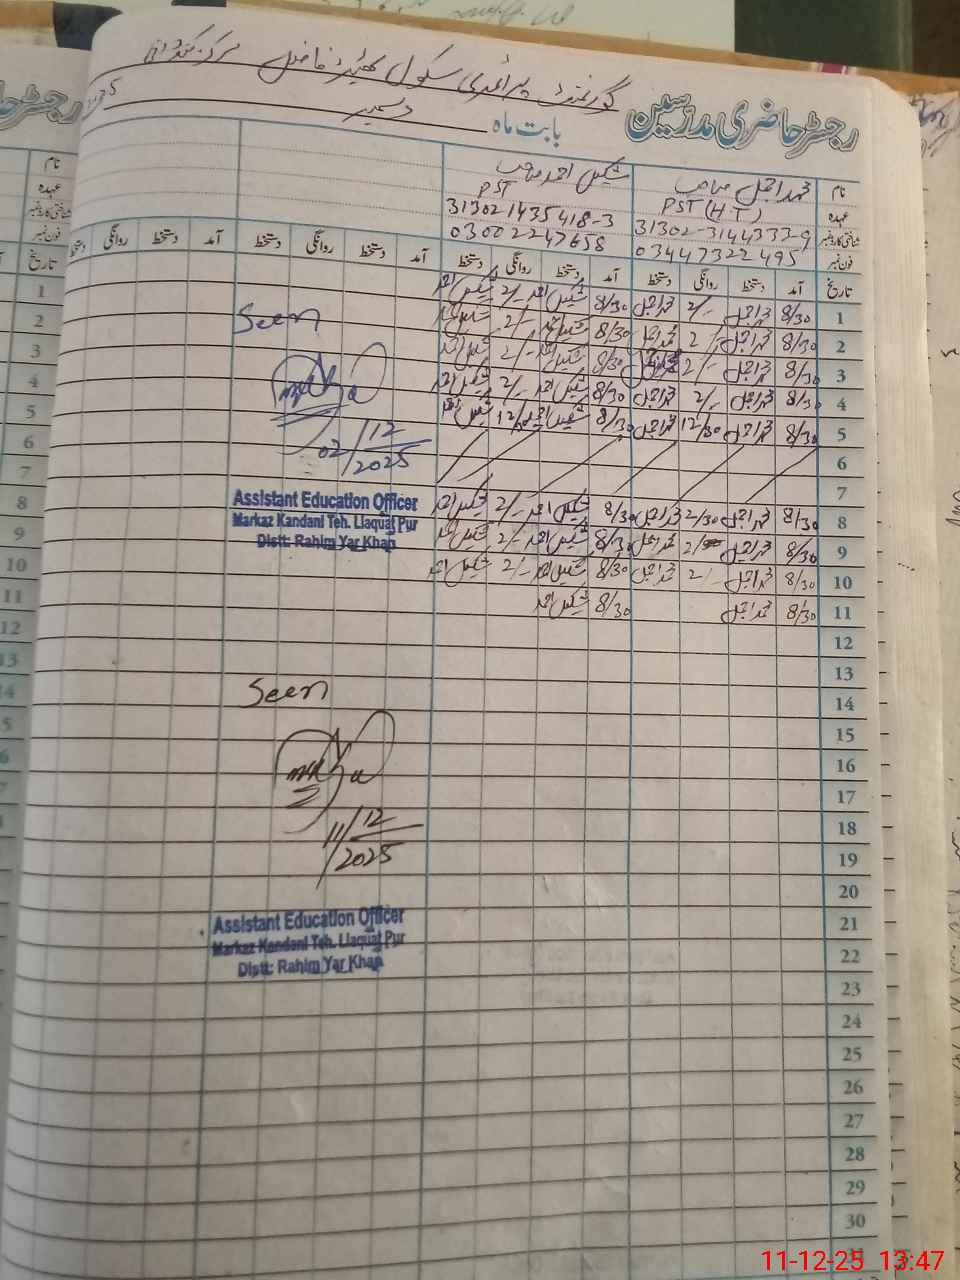 گورنمنٹ پرائمری سکول بھنڈ فاضل مرکز کندانی
رجسٹر حاضری مدرسین
بابت ماہ دسمبر 2025
نام محمد اجمل صاحب شکیل احمد صاحب
عہدہ PST (HT) PST
شناختی کارڈ نمبر 31302-3144333-9 313021435418-3
فون نمبر 03447322495 03002247658
تاریخ آمد دستخط روانگی دستخط آمد دستخط روانگی دستخط آمد دستخط روانگی دستخط آمد دستخط روانگی دستخط
1 8/30 محمد اجمل 2/- محمد اجمل 8/30 شکیل احمد 2/- شکیل احمد
2 8/30 محمد اجمل 2/- محمد اجمل 8/30 شکیل احمد 2/- شکیل احمد
3 8/30 محمد اجمل 2/- محمد اجمل 8/30 شکیل احمد 2/- شکیل احمد
4 8/30 محمد اجمل 2/- محمد اجمل 8/30 شکیل احمد 2/- شکیل احمد
5 8/30 محمد اجمل 12/30 محمد اجمل 8/30 شکیل احمد 12/30 شکیل احمد
6
7
8 8/30 محمد اجمل 2/30 محمد اجمل 8/30 شکیل احمد 2/- شکیل احمد
9 8/30 محمد اجمل 2/- محمد اجمل 8/30 شکیل احمد 2/- شکیل احمد
10 8/30 محمد اجمل 2/- محمد اجمل 8/30 شکیل احمد 2/- شکیل احمد
11 8/30 محمد اجمل 8/30 شکیل احمد
12
13
14
15
16
17
18
19
20
21
22
23
24
25
26
27
28
29
30
Seen
02/12/2025
Assistant Education Officer
Markaz Kandani Teh. Liaquat Pur
Distt: Rahim Yar Khan
Seen
11/12/2025
Assistant Education Officer
Markaz Kandani Teh. Liaquat Pur
Distt: Rahim Yar Khan
رجسٹر حا
نام
عہدہ
شناختی کارڈ نمبر
فون نمبر
تاریخ
1
2
3
4
5
6
7
8
9
10
11
12
13
14
11-12-25 13:47